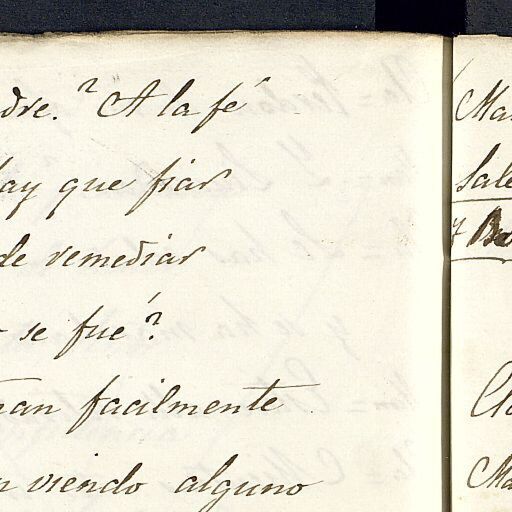 dre.? A la fé
ay que fiar
de remediar
se fué?
ran facilmente
n viendo alguno
Mar
Sale
y Be
Cla
Ma